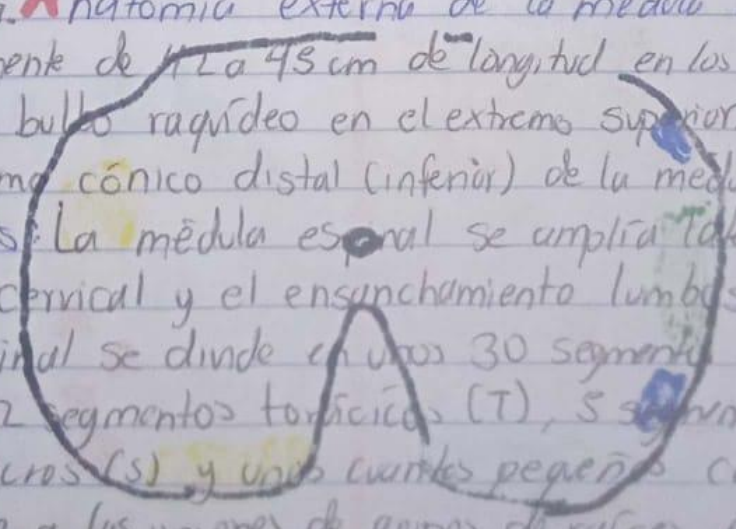 Anatomia externa de la medu
ente de 42 a 45 cm de longitud en los
bulbo raquídeo en el extremo superior
cónico distal (inferior) de la medu
La médula espinal se amplía
cervical y el ensanchamiento lumbos
inal se divide en unos 30 segmento
segmentos torácicos (T), 5
cros (S) y unos cuantos pequeños c